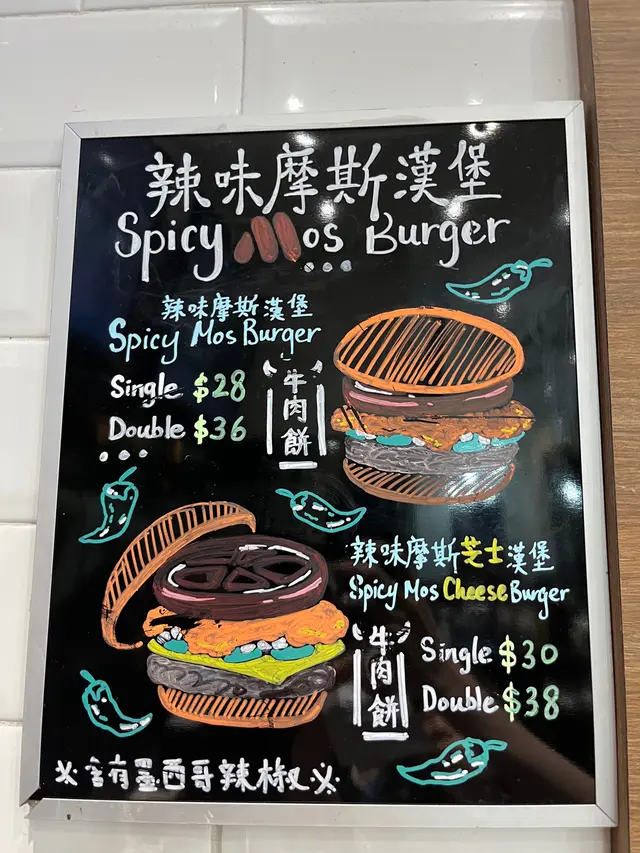 辣味摩斯漢堡
Spicy Mos Burger
辣味摩斯漢堡
Spicy Mos Burger
Single $28
Double $36
牛肉餅
辣味摩斯芝士漢堡
Spicy Mos Cheese Burger
牛肉餅
Single $30
Double $38
含有墨西哥辣椒